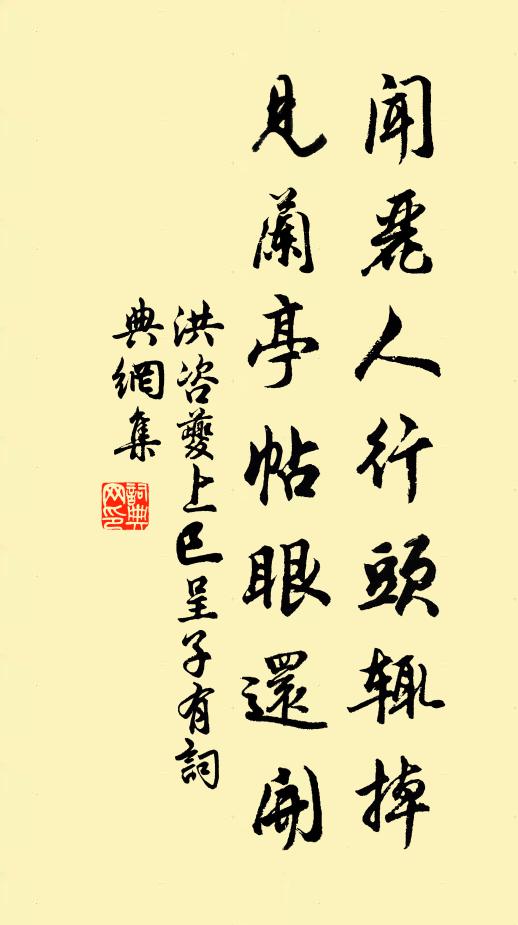 聞麗人行頭輒掉
見蘭亭帖眼還開
洪咨夔上巳呈子有詞
典網集
詞典網印